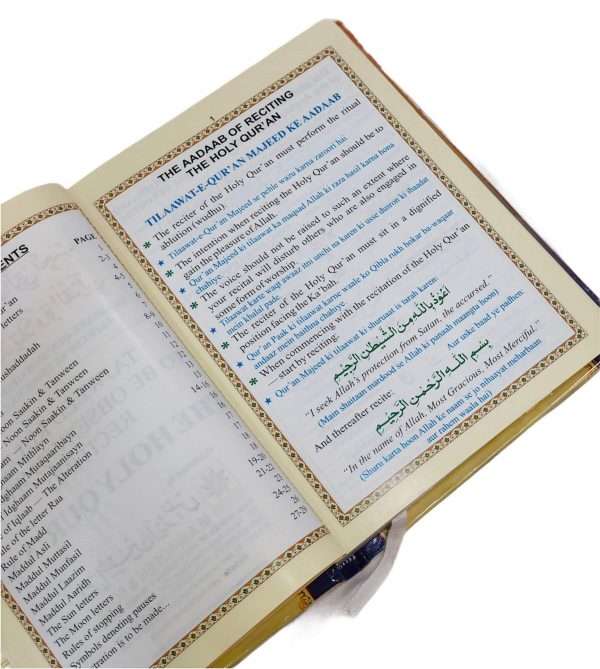 ENTS
PAGE
2-3
4-5
6-7
8-9
14-16
17
18
19-20
21-22
23
24-25
26
27-29
Noon Saakin & Tanween
Noon Saakin & Tanween
Noon Saakin & Tanween
Idghaam Mithlayn
Idghaam Mutaqaaribayn
Idghaam Mutajaanisayn
of Iqlaab — The Alteration
Rule of the letter Raa
Rule of Madd
Maddul Asli
Maddul Muttasil
Maddul Munfasil
Maddul Laazim
Maddul Aaridh
The Sun letters
The Moon letters
Rules of stopping
Symbols denoting pauses
1
THE AADAAB OF RECITING
THE HOLY QUR'AN
TILAAWAT-E-QUR'AN MAJEED KE AADAAB
The reciter of the Holy Qur'an must perform the ritual
ablution (wudhu).
Tilaawat-e-Qur'an Majeed se pehle wazu karna zaroori hai.
The intention when reciting the Holy Qur'an should be to
gain the pleasure of Allah.
Qur'an Majeed ki tilaawat ka maqsad Allah ki raza hasil karna hona
chahiye.
The voice should not be raised to such an extent where
your recital will disturb others who are also engaged in
some form of worship.
Tilaawat karte waqt awaaz itni unchi na karna ki usse dusron ki ibaadat
mein khalal pade.
The reciter of the Holy Qur'an must sit in a dignified
position facing the Ka'bah.
Qur'an Paak ki tilaawat karne waale ko Qibla rukh hokar ba-waqaar
andaaz mein baithna chahiye.
When commencing with the recitation of the Holy Qur'an
— start by reciting:
Qur'an Majeed ki tilaawat ki shuruaat is tarah karen:
اَعُوْذُ بِاللّٰهِ مِنَ الشَّيْطٰنِ الرَّجِيْمِ
"I seek Allah's protection from Satan, the accursed."
(Main shaitaan mardood se Allah ki panaah maangta hoon)
And thereafter recite: Aur uske baad ye padhen:
بِسْمِ اللّٰهِ الرَّحْمٰنِ الرَّحِيْمِ
"In the name of Allah, Most Gracious, Most Merciful."
(Shuru karta hoon Allah ke naam se jo nihaayat meharbaan
aur rahem waala hai)